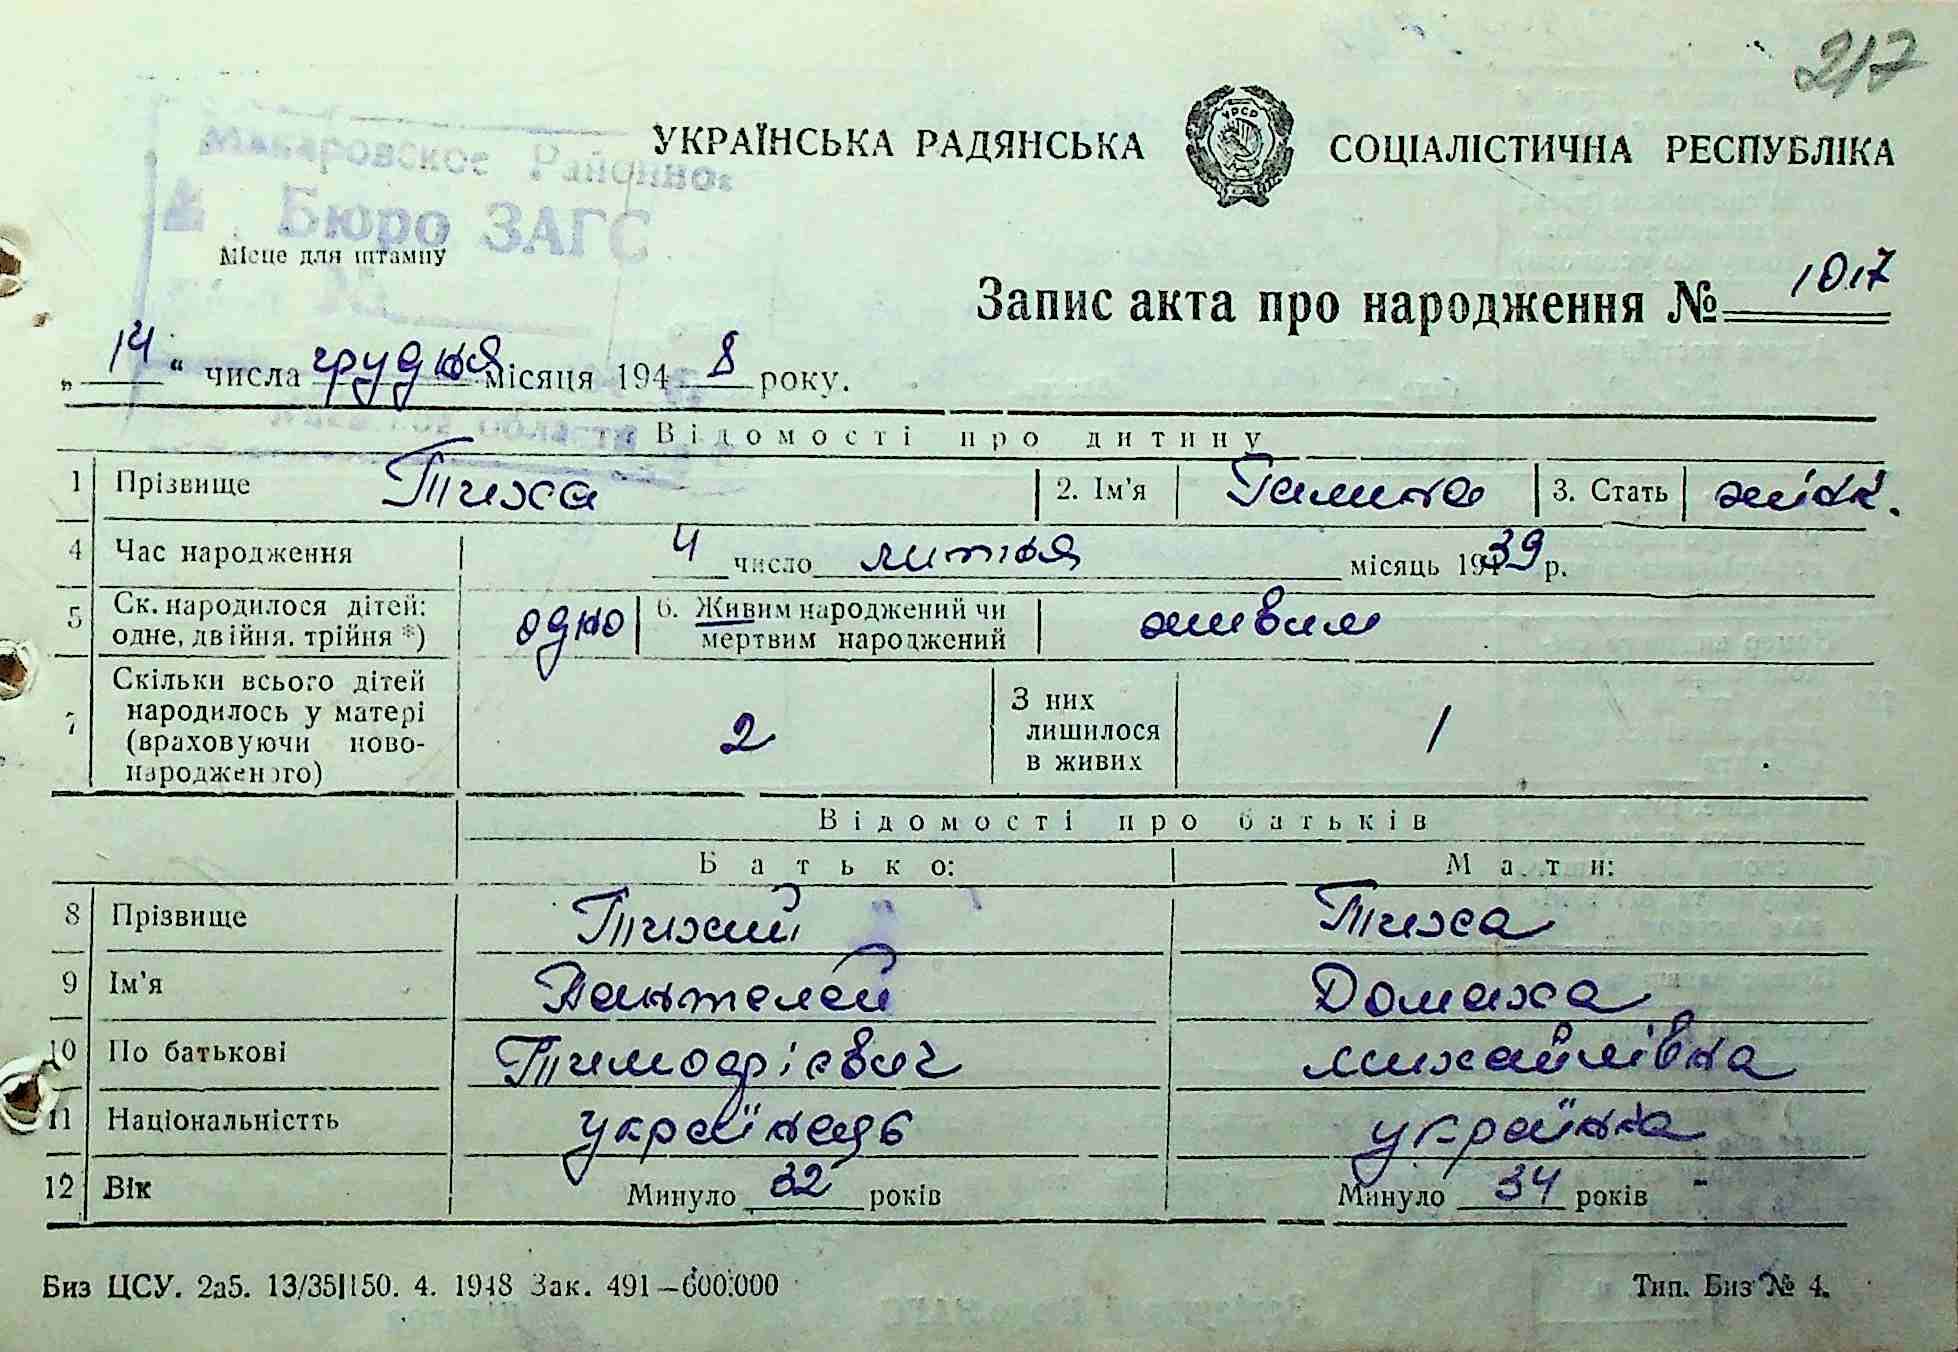 217
Макаровское Районное
УКРАЇНСЬКА РАДЯНСЬКА СОЦІАЛІСТИЧНА РЕСПУБЛІКА
Бюро ЗАГС
Місце для штампу
Запис акта про народження № 1017
„ 14 “ числа грудня місяця 194 8 року.
области
Відомості про дитину
1 Прізвище Тиха 2. Ім'я Галина 3. Стать жіноч.
4 Час народження 4 число лютня місяць 1939 р.
5 Ск. народилося дітей: одно 6. Живим народжений чи живим
одне, двійня, трійня *) мертвим народжений
7 Скільки всього дітей
народилось у матері
(враховуючи ново-
народженого) 2 З них
лишилося
в живих 1
Відомості про батьків
Батько: Мати:
8 Прізвище Тихий Тиха
9 Ім'я Пантелей Домаха
10 По батькові Тимофієвич михайлівна
11 Національністть українець українка
12 Вік Минуло 32 років Минуло 34 років
Биз ЦСУ. 2а5. 13/35|150. 4. 1948 Зак. 491—600.000 Тип. Биз № 4.